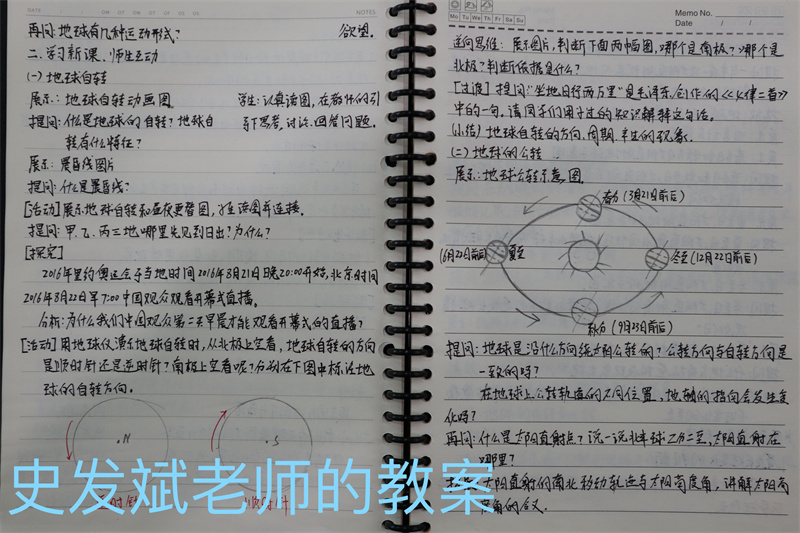 DATE
NOTES
再问:地球有几种运动形式?
欲望。
二、学习新课、师生互动
(一)地球自转
展示:地球自转动画图。
学生:认真读图,在教师的引
提问:什么是地球的自转?地球自
导下思考,讨论,回答问题。
转有什么特征?
展示:晨昏线图片
提问:什么是晨昏线?
[活动]展示地球自转和昼夜更替图,读图并连接。
提问:甲、乙、丙三地哪里先见到日出?为什么?
[探究]
2016年里约奥运会于当地时间2016年8月21日晚20:00开始,北京时间
2016年8月22日早7:00中国观众观看开幕式直播。
分析:为什么我们中国观众第二天早晨才能观看开幕式的直播?
[活动]用地球仪演示地球自转时,从北极上空看,地球自转的方向
是顺时针还是逆时针?南极上空看呢?分别在下图中标注地
球的自转方向。
·N
·S
史发斌老师的教案
Memo No.
Mo Tu We Th Fr Sa Su
Date / /
逆向思维:展示图片,判断下面两幅图,哪个是南极?哪个是
北极?判断依据是什么?
[过渡]提问:"坐地日行两万里"是毛泽东创作的《七律二首》
中的一句。请同学们用学过的知识解释这句话。
(小结)地球自转的方向、周期、产生的现象。
(二)地球的公转
展示:地球公转示意图。
春分(3月21前后)
(6月22前后)夏至
冬至(12月22前后)
秋分(9月23前后)
提问:地球是沿什么方向绕太阳公转的?公转方向与自转方向是
一致的吗?
在地球上公转轨道的不同位置,地轴的指向会发生变
化吗?
再问:什么是太阳直射点?说一说北半球二分二至,太阳直射在
哪里?
太阳直射的南北移动轨迹与太阳高度角,讲解太阳高
度角的含义。